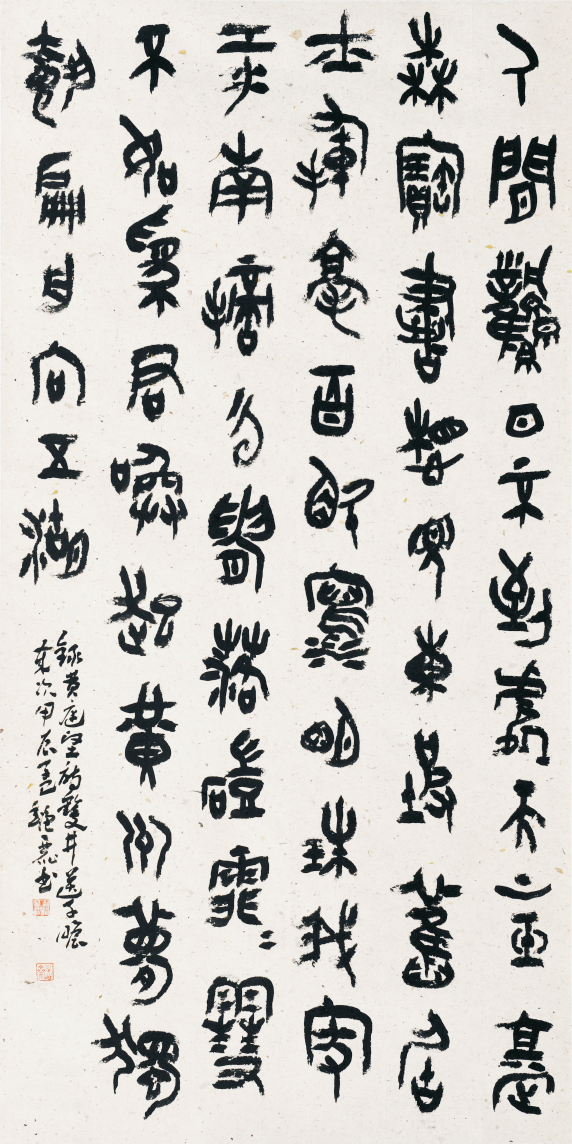 人間風日不到處天上玉堂
森寶書想見東坡舊居
士揮毫百斛寫明珠我家
江南摘云腴落磑霏霏雪
不如為君喚起黃州夢獨
載扁舟向五湖
錄黃庭堅詩雙井送子瞻
歲次甲辰夏書